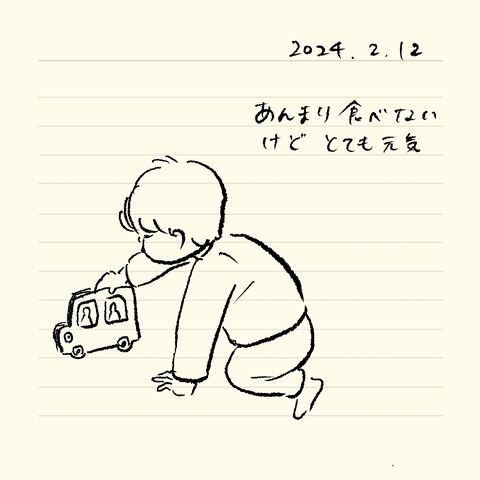 2024.2.12
あんまり食べない
けど とても元気